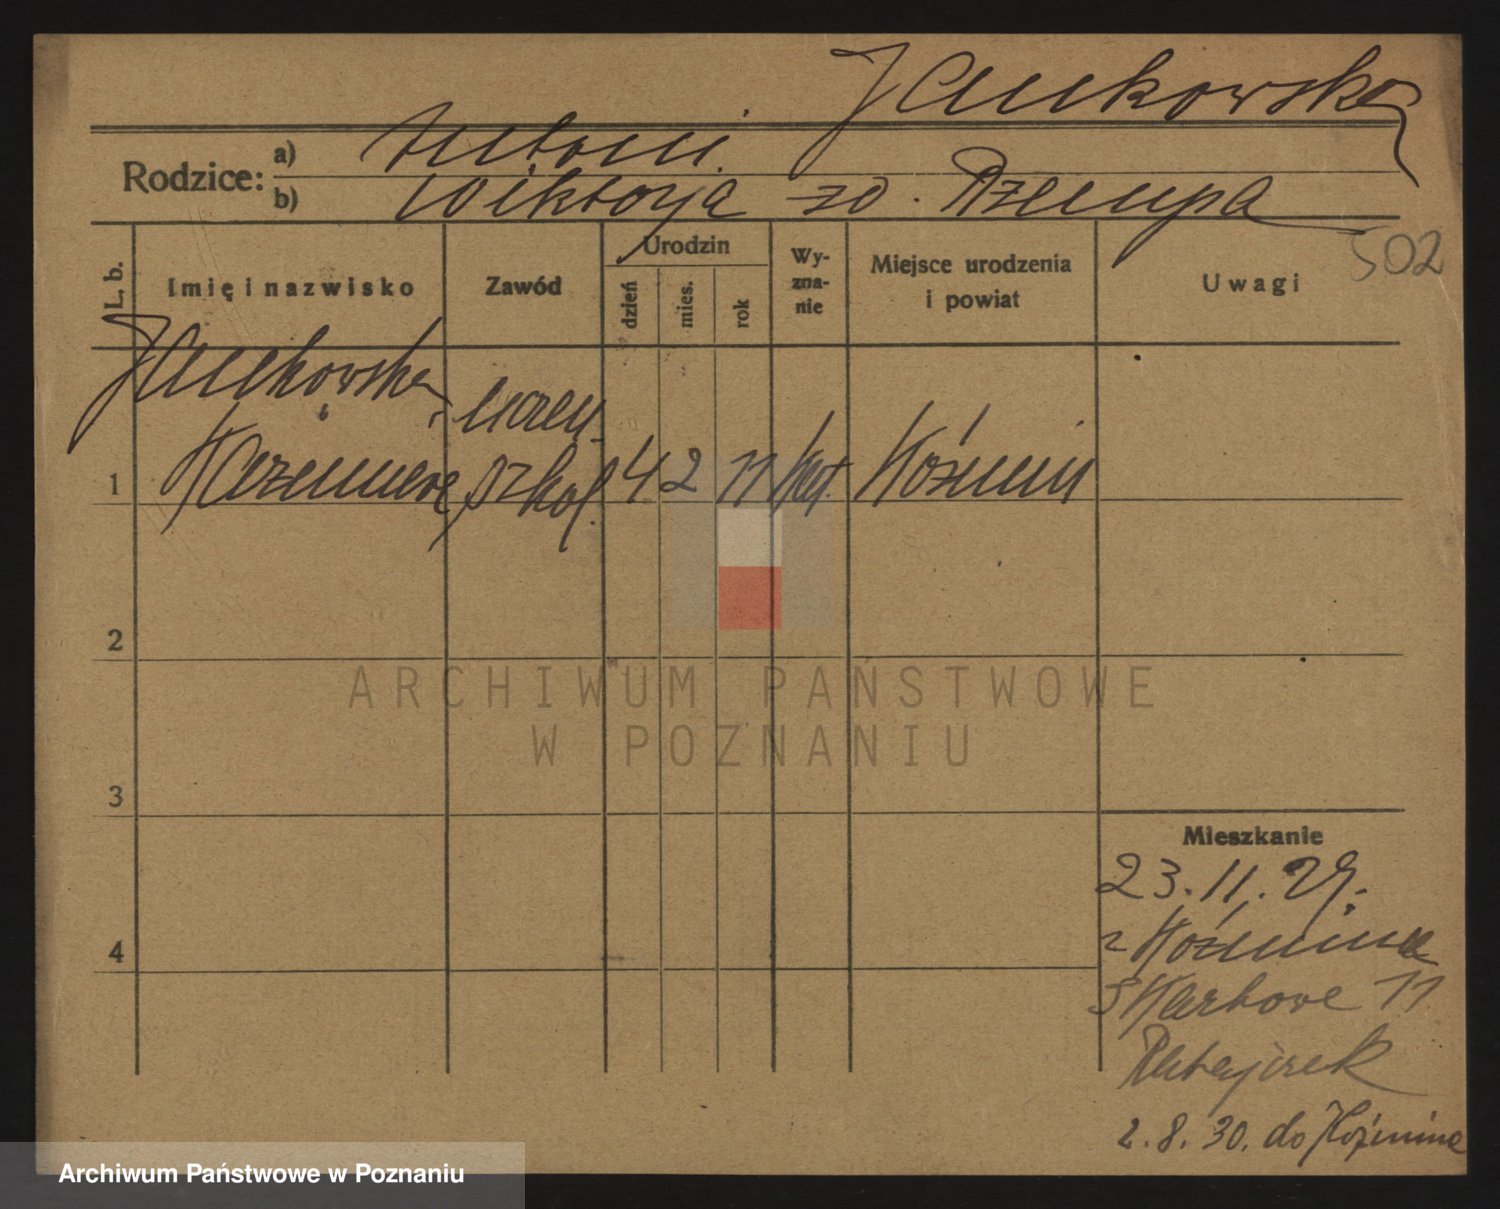 Jankowska
Rodzice: a) Antoni
b) Wiktorja zd. Rzempa
502
L. b. Imię i nazwisko Zawód Urodzin dzień mies. rok Wyznanie Miejsce urodzenia i powiat Uwagi
Jankowska uczen.
1 Kazimiera szkol. 4 2 11 kat. Koźmin
2
ARCHIWUM PAŃSTWOWE
W POZNANIU
3
Mieszkanie
23.11.29.
z Koźmina
4
Skarbowa 11
Ratajczak
2.8.30. do Koźmina
Archiwum Państwowe w Poznaniu